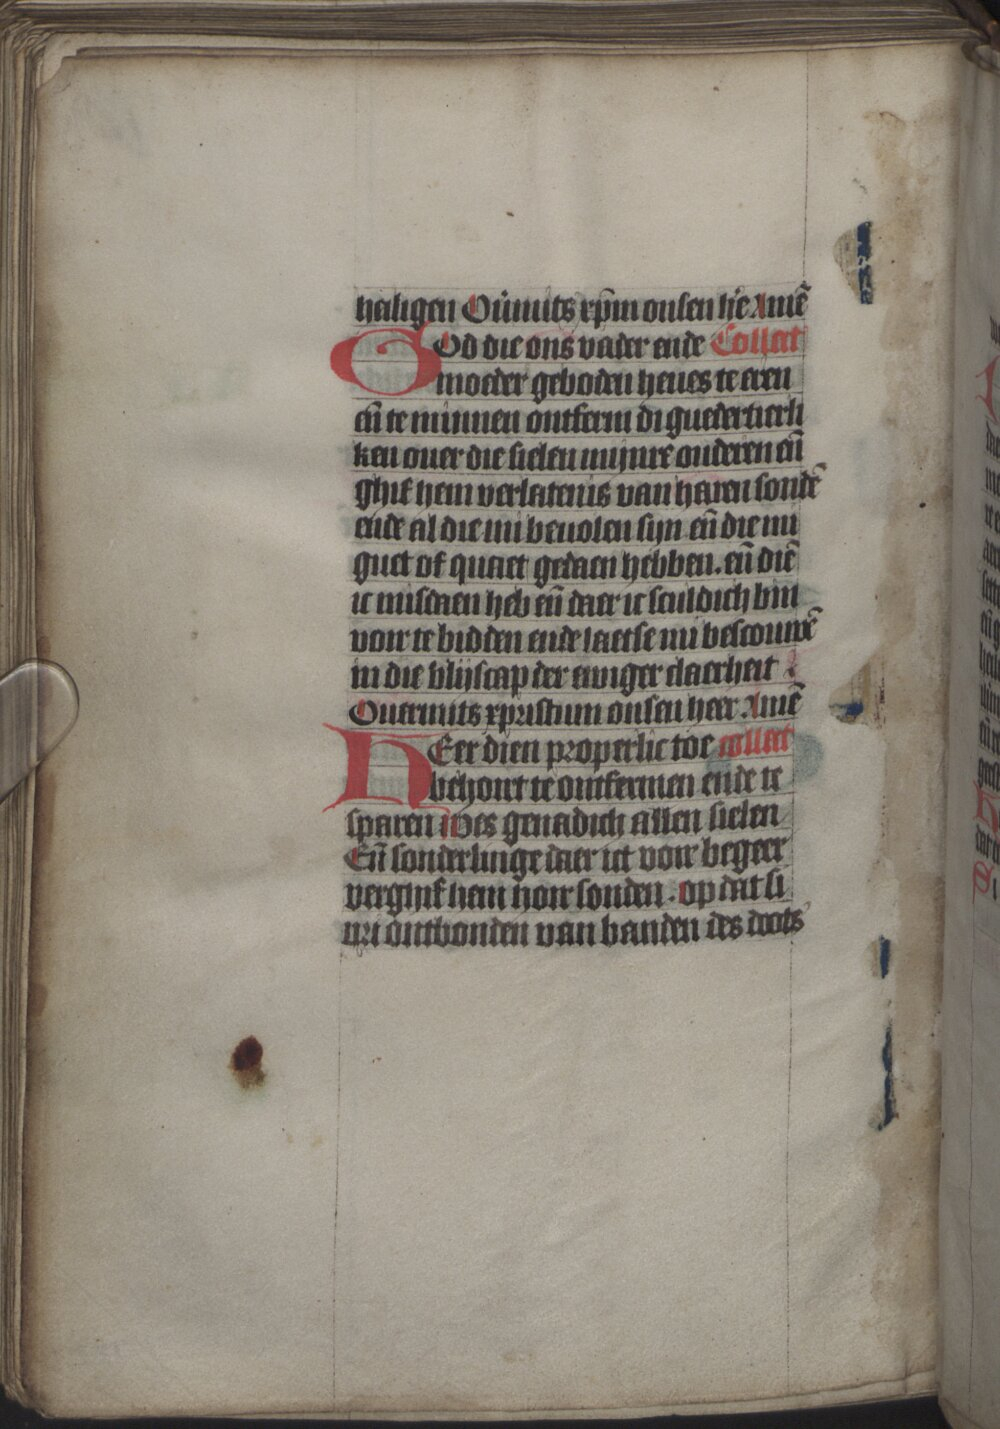 heiligen Ou̅mits xp̅m onsen he̅ Ame̅
GOd die ons vader ende Collect
moeder geboden heues te eren
en̅ te minnen ontferm di guedertierli
ken ouer die sielen mijnre ouderen en̅
ghif hem verlatenis van haren sonde̅
ende al die mi beuolen sijn en̅ die mi
guet of quaet gedaen hebben. en̅ die̅
ic misdaen heb en̅ daer ic sculdich bin
voir te bidden ende laetse mi bescouwe̅
in die blijscap der ewiger claerheit
Ouermits xpristum onsen heer Ame̅
HEer dien properlic toe collect
behoirt te ontfermen ende te
sparen Wes genadich allen sielen
En̅ sonderlinge daer ict voir begeer
verghif hem hoir sonden. op dat si
vri ontbonden van banden des doots